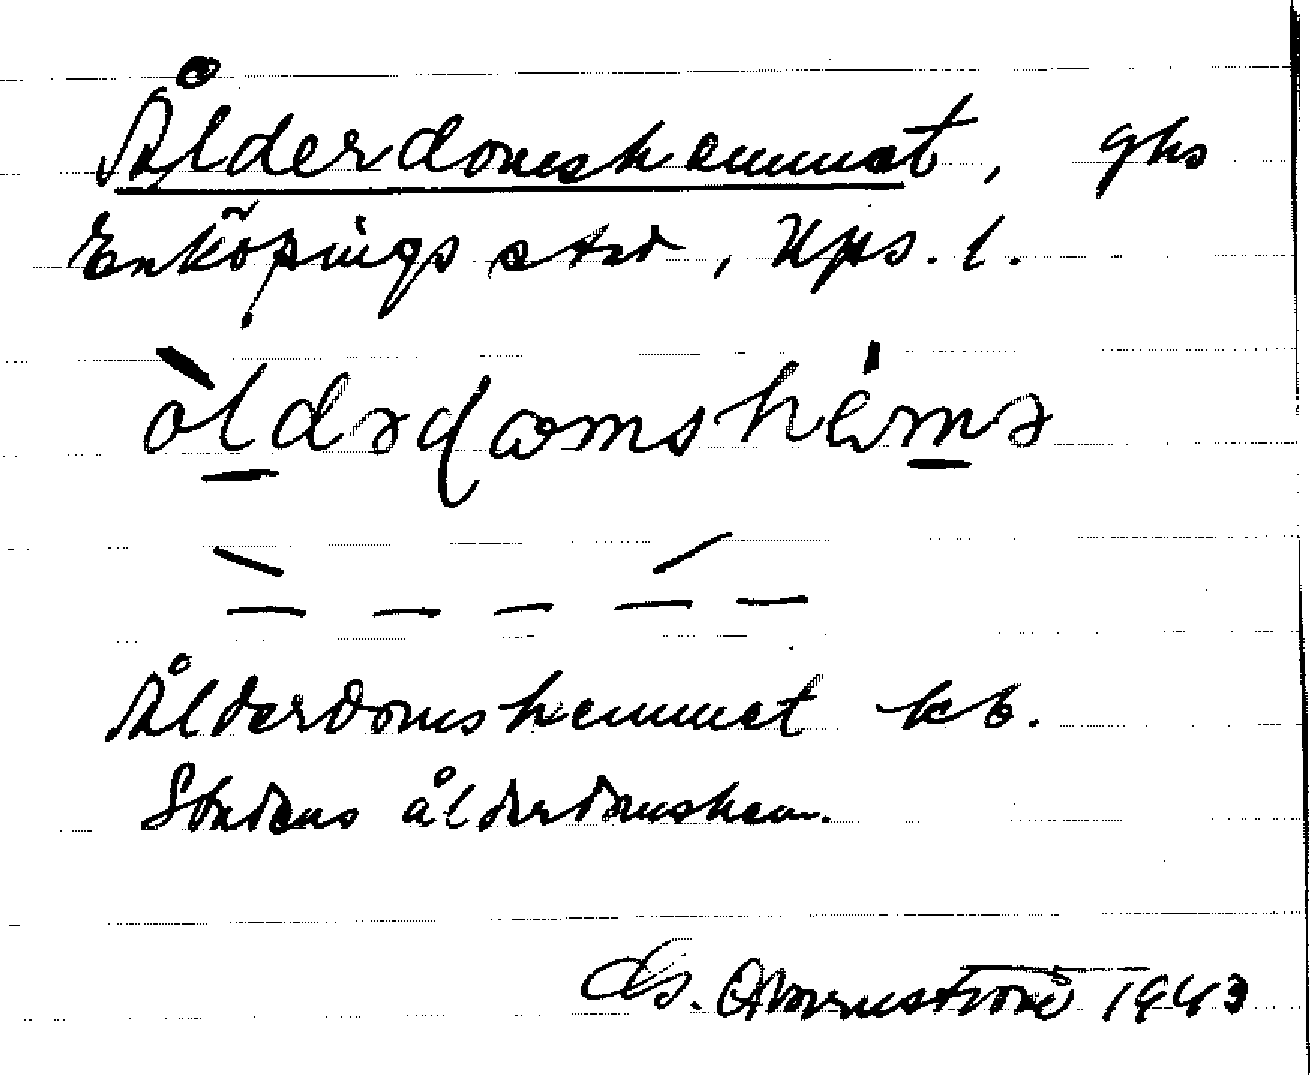 Ålderdomshemmet, ghs
Enköpings stad, Upps. l.
Ålderdomshemmet kb.
Stadens ålderdomshem.
1943